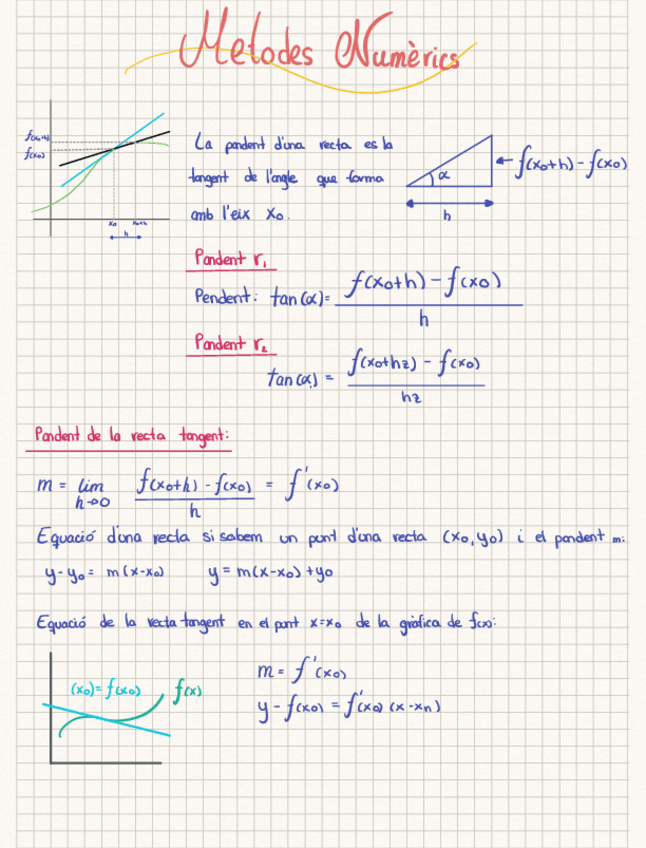 Metodes Numèrics
f(x0+h)
f(x0)
x0 x0+h
h
La pendent d'una recta es la
tangent de l'angle que forma
amb l'eix X0.
α
h
f(x0+h) - f(x0)
Pendent r1
Pendent: tan(α) = f(x0+h) - f(x0) / h
Pendent r2
tan(α) = f(x0+h2) - f(x0) / h2
Pendent de la recta tangent:
m = lim h→0 f(x0+h) - f(x0) / h = f'(x0)
Equació d'una recta si sabem un punt d'una recta (x0,y0) i el pendent m:
y-y0 = m(x-x0) y = m(x-x0) + y0
Equació de la recta tangent en el punt x=x0 de la gràfica de f(x):
(x0) = f(x0) f(x)
m = f'(x0)
y - f(x0) = f'(x0) (x-xn)